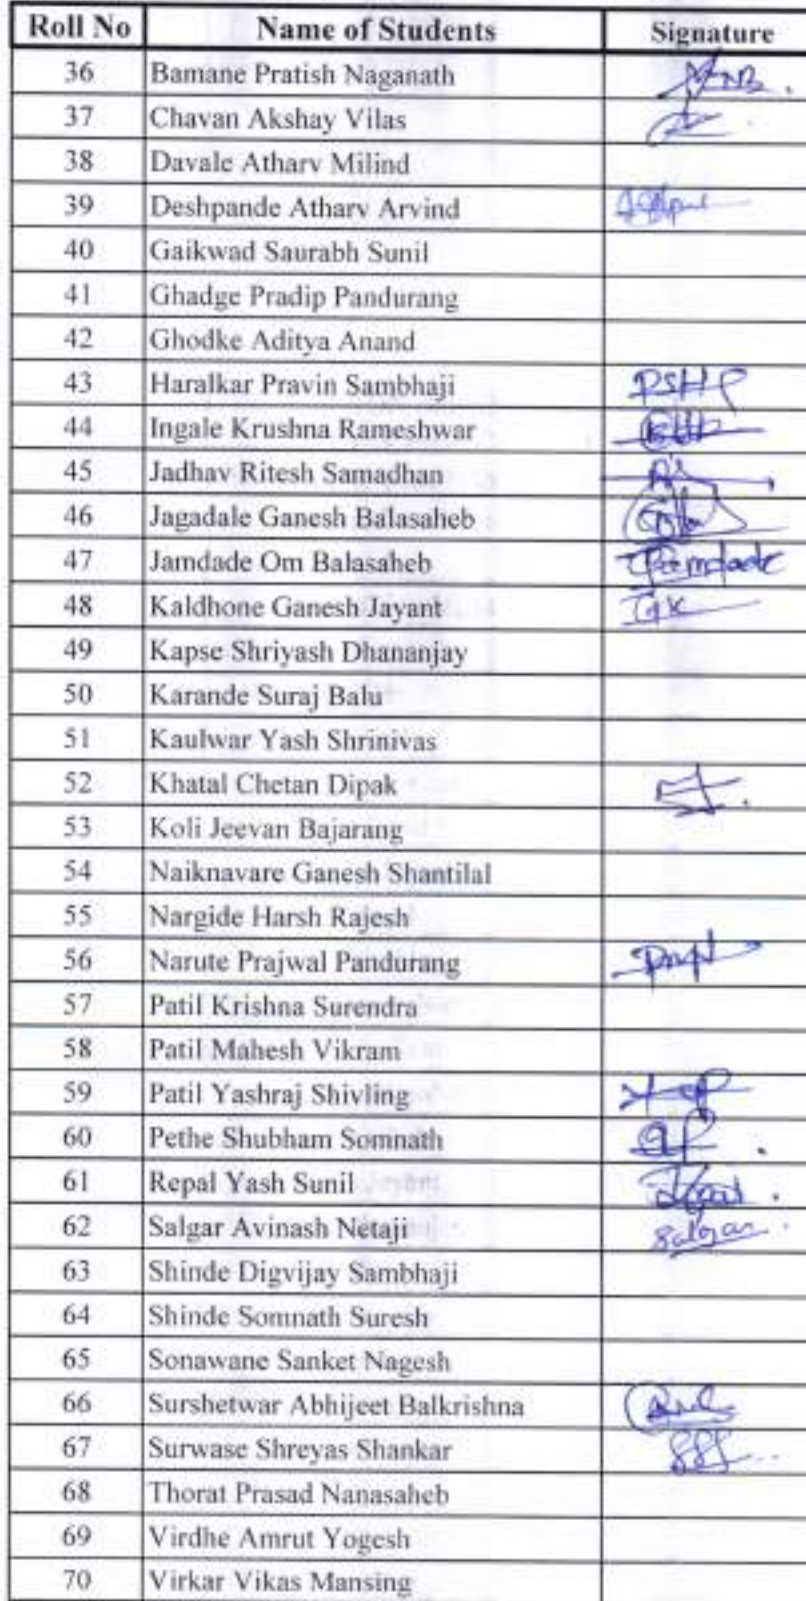 Roll No Name of Students Signature
36 Bamane Pratish Naganath
37 Chavan Akshay Vilas
38 Davale Atharv Milind
39 Deshpande Atharv Arvind
40 Gaikwad Saurabh Sunil
41 Ghadge Pradip Pandurang
42 Ghodke Aditya Anand
43 Haralkar Pravin Sambhaji PSHP
44 Ingale Krushna Rameshwar
45 Jadhav Ritesh Samadhan
46 Jagadale Ganesh Balasaheb
47 Jamdade Om Balasaheb
48 Kaldhone Ganesh Jayant GK
49 Kapse Shriyash Dhananjay
50 Karande Suraj Balu
51 Kaulwar Yash Shrinivas
52 Khatal Chetan Dipak
53 Koli Jeevan Bajarang
54 Naiknavare Ganesh Shantilal
55 Nargide Harsh Rajesh
56 Narute Prajwal Pandurang
57 Patil Krishna Surendra
58 Patil Mahesh Vikram
59 Patil Yashraj Shivling
60 Pethe Shubham Somnath
61 Repal Yash Sunil
62 Salgar Avinash Netaji Salgar
63 Shinde Digvijay Sambhaji
64 Shinde Somnath Suresh
65 Sonawane Sanket Nagesh
66 Surshetwar Abhijeet Balkrishna
67 Surwase Shreyas Shankar
68 Thorat Prasad Nanasaheb
69 Virdhe Amrut Yogesh
70 Virkar Vikas Mansing